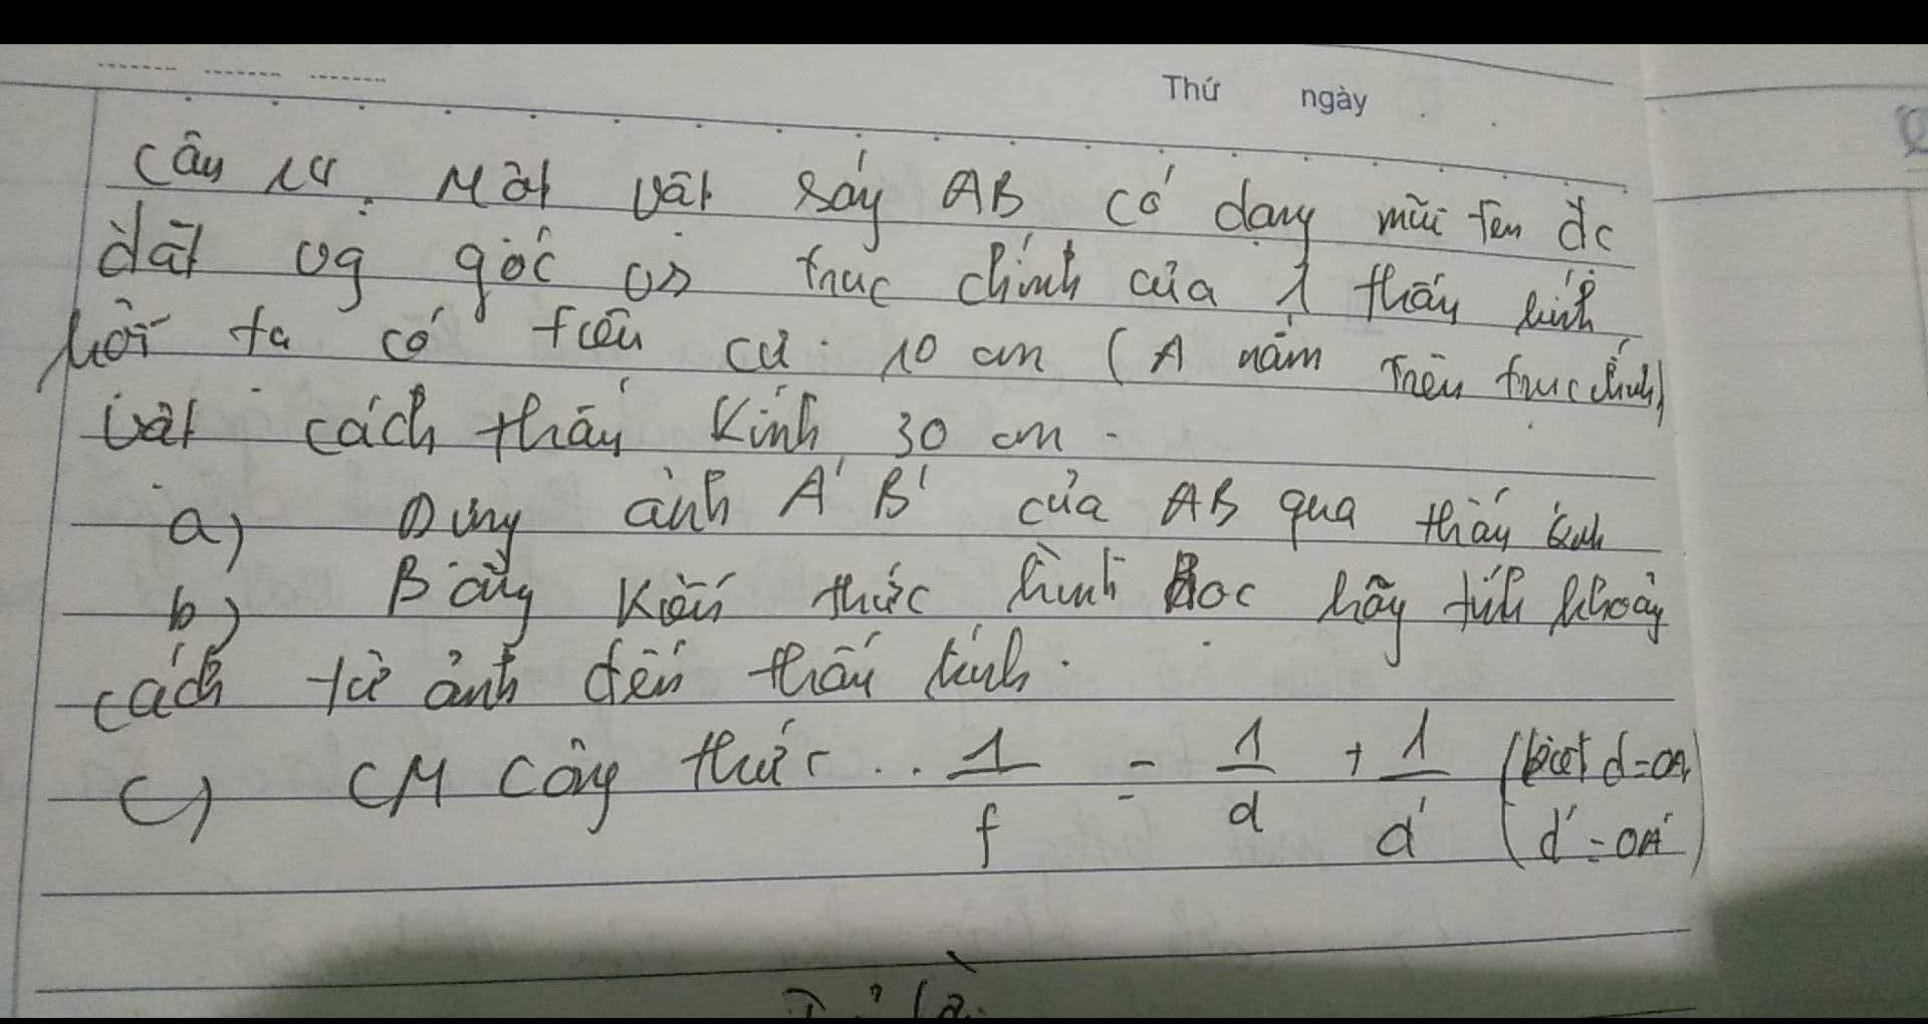 Thứ ngày
Câu 14. Một vật sáng AB có dạng mũi tên đc
đặt vg góc vs trục chính của 1 thấu kính
hội tụ có tiêu cự 10 cm (A nằm trên trục chính)
vật cách thấu kính 30 cm.
a) Dựng ảnh A'B' của AB qua thấu kính
b) Bằng kiến thức hình học hãy tính khoảng
cách từ ảnh đến thấu kính.
c) CM công thức .. 1/f = 1/d + 1/d' (biết d=OA, d'=OA')